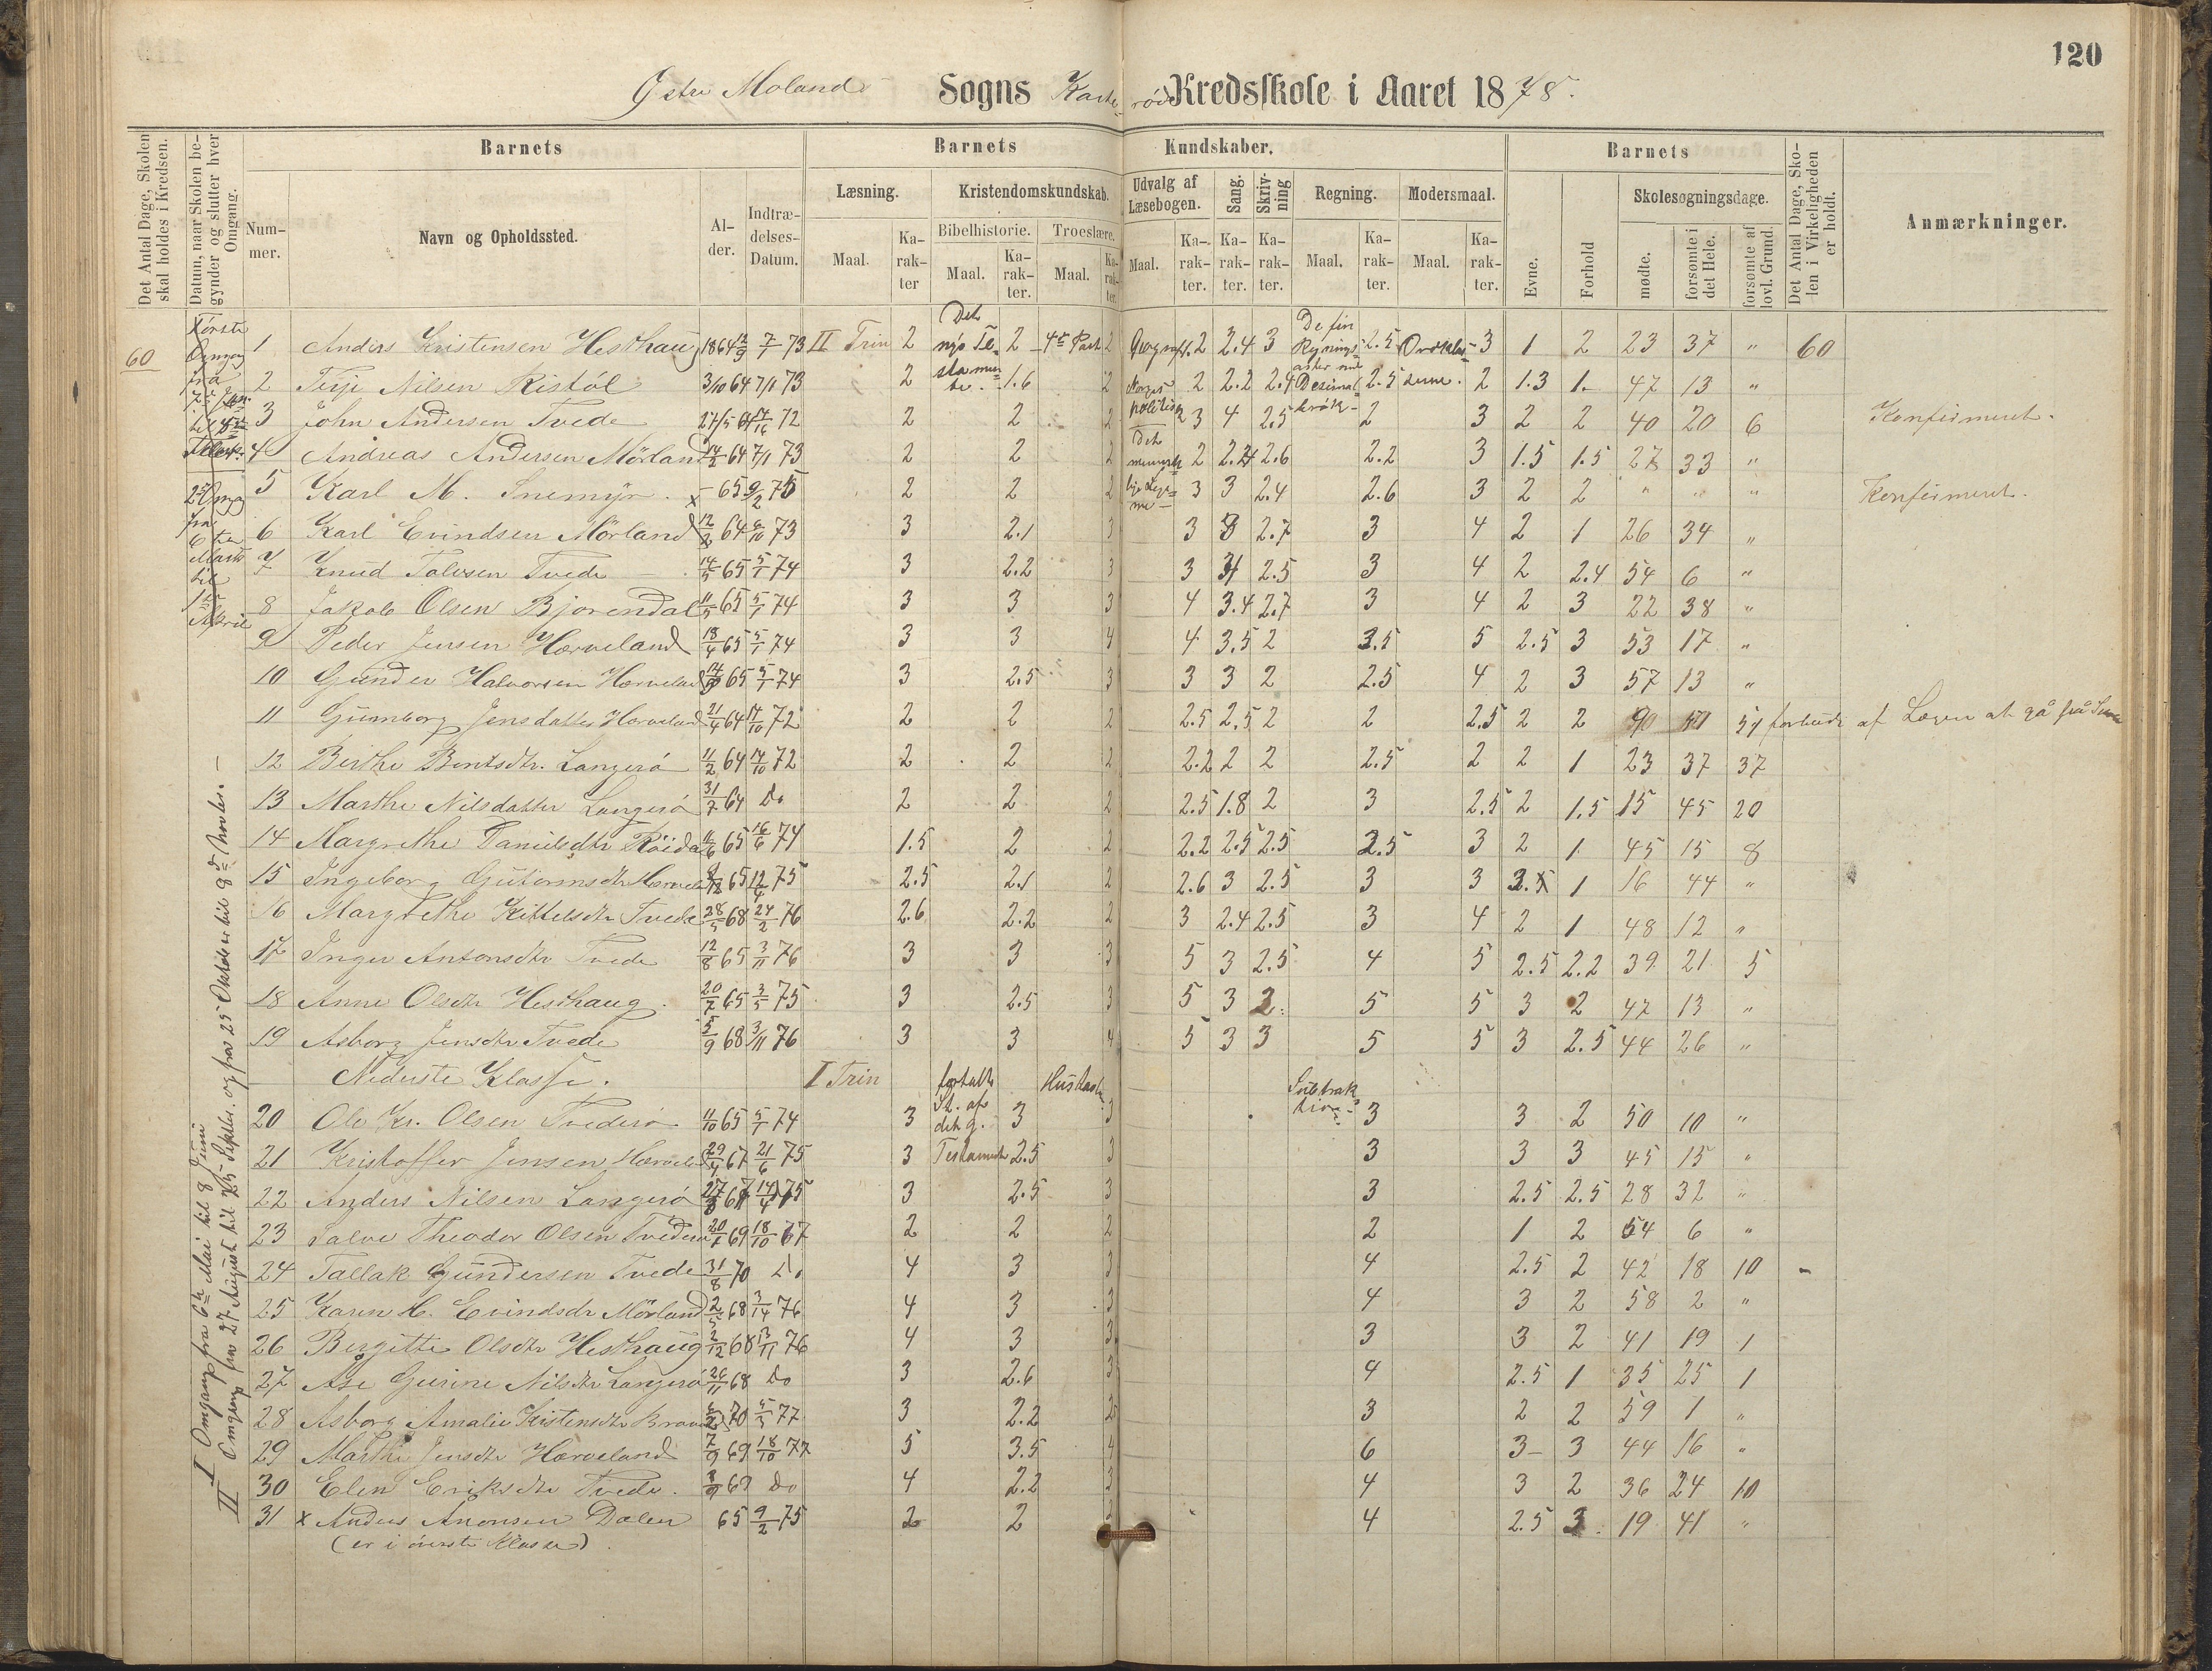 120
Østre Moland Sogns Kredsskole i Aaret 1878.
Det Antal Dage, Skolen skal holdes i Kredsen.
Datum, naar Skolen begynder og slutter hver Omgang.
Barnets
Barnets Kundskaber.
Barnets
Det Antal Dage, Skolen i Virkeligheden er holdt.
Anmærkninger.
Nummer.
Navn og Opholdssted.
Alder.
Indtrædelses-Datum.
Læsning.
Kristendomskundskab.
Udvalg af Læsebogen.
Sang.
Skrivning
Regning.
Modersmaal.
Evne.
Forhold
Skolesøgningsdage.
Bibelhistorie.
Troeslære.
mødte.
forsømte i det Hele.
forsømte af lovl. Grund.
Maal. Karakter Maal. Karakter. Maal. Karakter. Maal. Karakter. Karakter. Karakter. Maal. Karakter. Maal. Karakter.
60
Første Omgang fra 7de Jan. til
2den Omgang fra 6te Marts til 1ste April
I Omgang fra 6te Mai til 8 Juni
II Omgang fra 27 August til 25 Septbr. og fra 25 Oktober til 8de Novbr. —
1 Anders Kristensen Hesthaug 1864 12/9 7/1 73 II Trin 2 Det nye Testamente. 2 4de Part 2 Geograf. 2 2.4 3 De fire Regningsarter med Desimalbrøk 2.5 3 1 2 23 37 " 60
2 Terje Nilsen Ristøl 3/10 64 7/1 73 2 1.6 2 Norges 2 2.2 2.4 2.5 2 1.3 1. 47 13 "
3 John Andersen Tvede 27/5 64 72 2 2 2 politisk 3 4 2.5 2 3 2 2 40 20 6 Konfirmeret.
4 Andreas Andersen Mørland 64 7/1 73 2 2 2 Det menneskelige Legeme 2 2.4 2.6 2.2 3 1.5 1.5 27 33 "
5 Karl M. Snemyr. x – 65 9/2 75 2 2 2 3 3 2.4 2.6 3 2 2 " " " Konfirmeret.
6 Karl Evindsen Mørland 12/2 64 73 3 2.1 3 3 3 2.7 3 4 2 1 26 34 "
7 Knud Talvsen Tvede 14/5 65 5/1 74 3 2.2 3 3 2.5 3 4 2 2.4 54 6 "
8 Jakob Olsen Bjorendal 11/5 65 5/1 74 3 3 3 4 3.4 2.7 3 4 2 3 22 38 "
9 Peder Jensen Hærveland 18/4 65 5/1 74 3 3 4 4 3.5 2 3.5 5 2.5 3 53 17 "
10 Gunder Halvorsen Hærveland 65 5/1 74 3 2.5 3 3 3 2 2.5 4 2 3 57 13 "
11 Gunnborg Jensdatter Hærveland 21/4 64 14/10 72 2 2 2 2.5 2.5 2 2 2.5 2 2 51 forbudt af Lægen at gå
12 Birthe Berntsdtr. Langerø 11/2 64 14/10 72 2 2 2 2.2 2 2 2.5 2 2 1 23 37 37
13 Marthe Nilsdatter Langerø 31/7 64 Do 2 2 2 2.5 1.8 2 3 2.5 2 1.5 15 45 20
14 Margrethe Danielsdtr 11/6 65 16/6 74 1.5 2 2 2.2 2.5 2.5 2.5 3 2 1 45 15 8
15 Ingeborg Gutormsdtr Hærveland 65 12/6 75 2.5 2.1 2 2.6 3 2.5 3 3 1 16 44 "
16 Margrethe Kittelsdtr Tvede 28/5 68 24/2 76 2.6 2.2 2 3 2.4 2.5 3 4 2 1 48 12 "
17 Inger Antonsdtr Tvede 12/8 65 3/11 76 3 3 3 5 3 2.5 4 5 2.5 2.2 39 21 5
18 Anne Olsdtr Hesthaug. 20/7 65 3/5 75 3 2.5 3 5 3 2. 5 5 3 2 47 13 "
19 Asborg Jensdtr Tvede 5/9 68 3/11 76 3 3 4 5 3 3 5 5 3 2.5 44 26 "
Nederste Klasse. I Trin
20 Ole Kr. Olsen Tvederø 11/10 65 5/1 74 3 fortalte St. af det g. 3 3 Subtraktion 3 3 2 50 10 "
21 Kristoffer Jensen Hærveland 29/4 67 21/6 75 3 Testamente 2.5 3 3 3 3 45 15 "
22 Anders Nilsen Langerø 14/4 75 3 2.5 3 3 2.5 2.5 28 32 "
23 Salve Theodor Olsen Tvederø 20/1 69 18/10 67 2 2 2 2 1 2 54 6 "
24 Tallak Gundersen Tvede 31/8 70 Do 4 3 3 4 2.5 2 42 18 10 -
25 Karen H. Evindsdr Mørland 2/5 68 3/14 76 4 3 3 4 3 2 58 2 "
26 Bergitte Olsdtr Hesthaug 2/12 68 13/11 76 4 3 3 3 3 2 41 19 1
27 Åse Gurine Nilsdtr Langerø 26/11 68 Do 3 2.6 3 4 2.5 1 35 25 1
28 Asborg Amalie Kristensdtr 70 77 3 2.2 2 3 2 2 59 1 "
29 Marthe Jensdtr Hærveland 7/9 69 18/10 77 5 3.5 4 6 3– 3 44 16 "
30 Elen Eriksdtr Tvede. 69 Do 4 2.2 3 4 3 2 36 24 10
31 x Anders Aronsen Dalen 65 9/2 75 2 2 2 4 2.5 3. 19 41 "
(er i øverste Klasse).